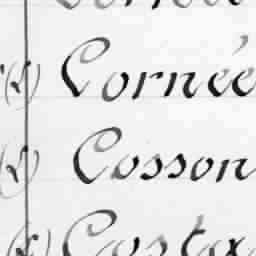 (S) Cornée
(S) Cosson
(S) Costa